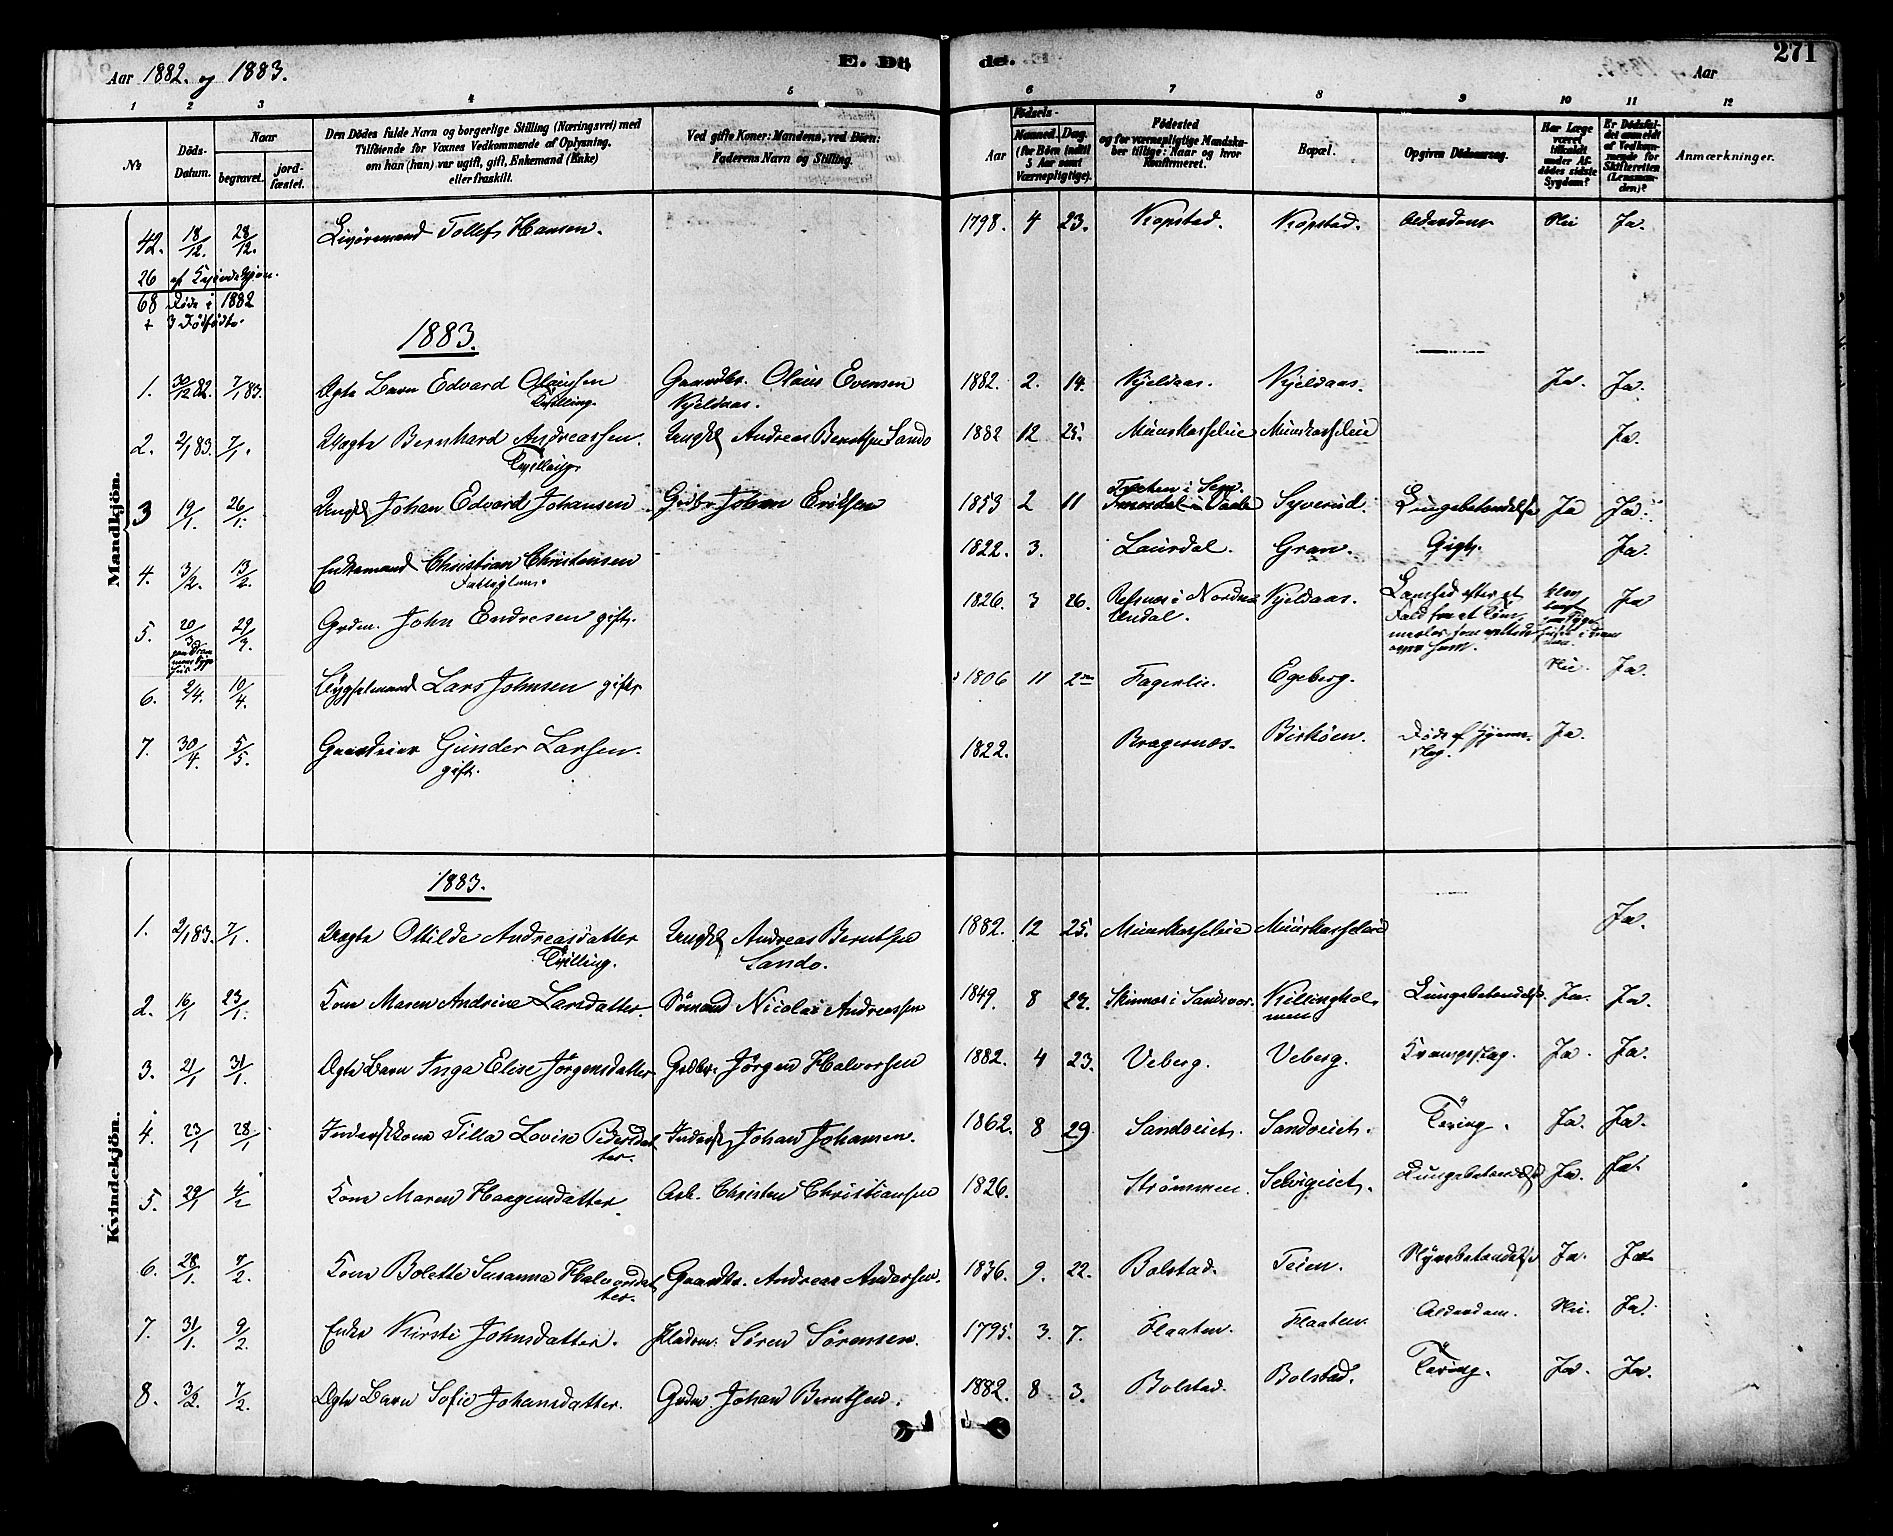 Aar 1882. og 1883.
E. Dö
de.
271
Aar
1 2 3 4 5 6 7 8 9 10 11 12
No
Döds-Datum.
Naar
begravet.
jord-fæstet.
Den Dödes fulde Navn og borgerlige Stilling (Næringsvei) med
Tilföiende for Voxnes Vedkommende af Oplysning,
om han (hun) var ugift, gift, Enkemand (Enke)
eller fraskilt.
Ved gifte Koner: Mandens, ved Börn:
Faderens Navn og Stilling.
Födsels-
Aar
Maaned. Dag.
(for Börn indtil
5 Aar samt
Værnepligtige).
Födested
og for værnepligtige Mandska-
ber tillige: Naar og hvor
Konfirmeret.
Bopæl.
Opgiven Dödsaarsag.
Har Læge
været
tilkaldt
under Af-
dödes sidste
Sygdom?
Er Dödsfal-
det anmeldt
af Vedkom-
mende for
Skifteretten
(Lensman-
den)?
Anmærkninger.
Mandkjön.
42. 18/12. 28/12. Livöremand Tollef Hansen. 1798. 4 23. Kopstad. Kopstad. Alderdom Nei Ja.
26 af Kvindekjön.
68 Døde i 1882
+ 3 Dödfödte.
1883.
1. 30/12 82. 7/1 83. Ægte Barn Edvard Olaussen Gaardbr. Olaus Evensen 1882. 2. 14. Kjeldaas. Kjeldaas. Ja. Ja.
Tvilling. Kjeldaas.
2. 2/1 83. 7/1. Uægte Bernhard Andreassen. Ungk. Andreas Berntsen Sando 1882 12 25. Ja.
Tvilling.
3 19/1. 26/1. Ungk. Johan Edvard Johansen Grdbr. Johan Eriksen 1853 2 11 i Sem. Syverud. Lungebetændelse Ja Ja.
4. 3/2. 13/2. Enkemand Christian Christensen 1822. 3. Laurdal. Gran. Gigt. Ja.
Fattiglem.
5. 20/3 29/3. Grdm. John Endresen gift. 1826. 3 26. i Nordre Undal. Kjeldaas. Lamhed efter et Fald fra et Ja
over ham.
6. 2/4. 10/4. Lars Johnsen gift 1806 11 2 Fagerlie. Egeberg. Nei. Ja.
7. 30/4. 5/5. Gaardeier Gunder Larsen. 1822. Bragernæs. Bisköen. Döde af Hjerneslag. Ja.
gift.
Kvindekjön.
1883.
1. 2/1 83. 7/1. Uægte Otilde Andreasdatter Ungk. Andreas Berntsen 1882. 12 25. Ja.
Tvilling. Sando.
2. 16/1 23/1. Kone Maren Andrine Larsdatter. Sömand Nicolai Andreassen 1849. 8 22. i Sandsvær. Killingholmen Lungebetændelse. Ja. Ja.
3. 21/1 31/1. Ægte Barn Inga Elise Jörgensdatter Grdbr. Jörgen Halvorsen 1882. 4 23. Veberg. Veberg. Krampeslag. Ja. Ja.
4. 23/1 28/1 Inderstkone Tilla Lovise Pedersdatter. Inderst Johan Johansen. 1862. 8 29. Sandveiet. Sandveiet. Tæring. Ja. Ja.
5. 29/1 4/2 Kone Maren Haagensdatter. Arb. Christen Christiansen 1826. Strömmen. Selvigeiet. Lungebetændelse Ja. Ja.
6. 28/1. 7/2. Kone Bolette Susanna Halvorsdatter. Gaardbr. Andreas Andersen. 1836. 9. 22. Bolstad. Teien. Nyrebetændelse Ja. Ja.
7. 31/1. 9/2. Enke Kirsti Johnsdatter. Sören Sörensen. 1795. 3. 7. Flaaten. Flaaten. Alderdom. Nei. Ja.
8. 3/2. 7/2. Ægte Barn Sofie Johansdatter. Grdm. Johan Berntsen. 1882. 8 3. Bolstad. Bolstad. Tæring. Ja. Ja.